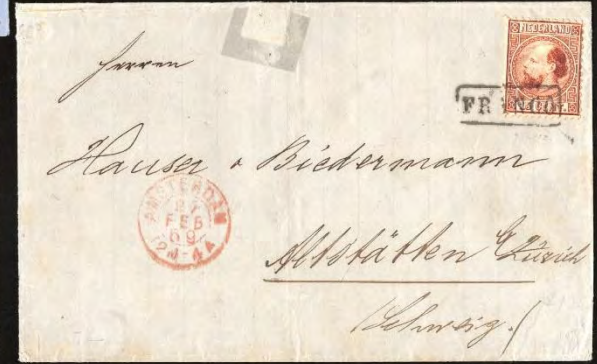 NEDERLAND
Herren
FRANCO
Hauser & Biedermann
AMSTERDAM
27
FEB
69
12M-4A
Altstätten Zürich
Schweiz.